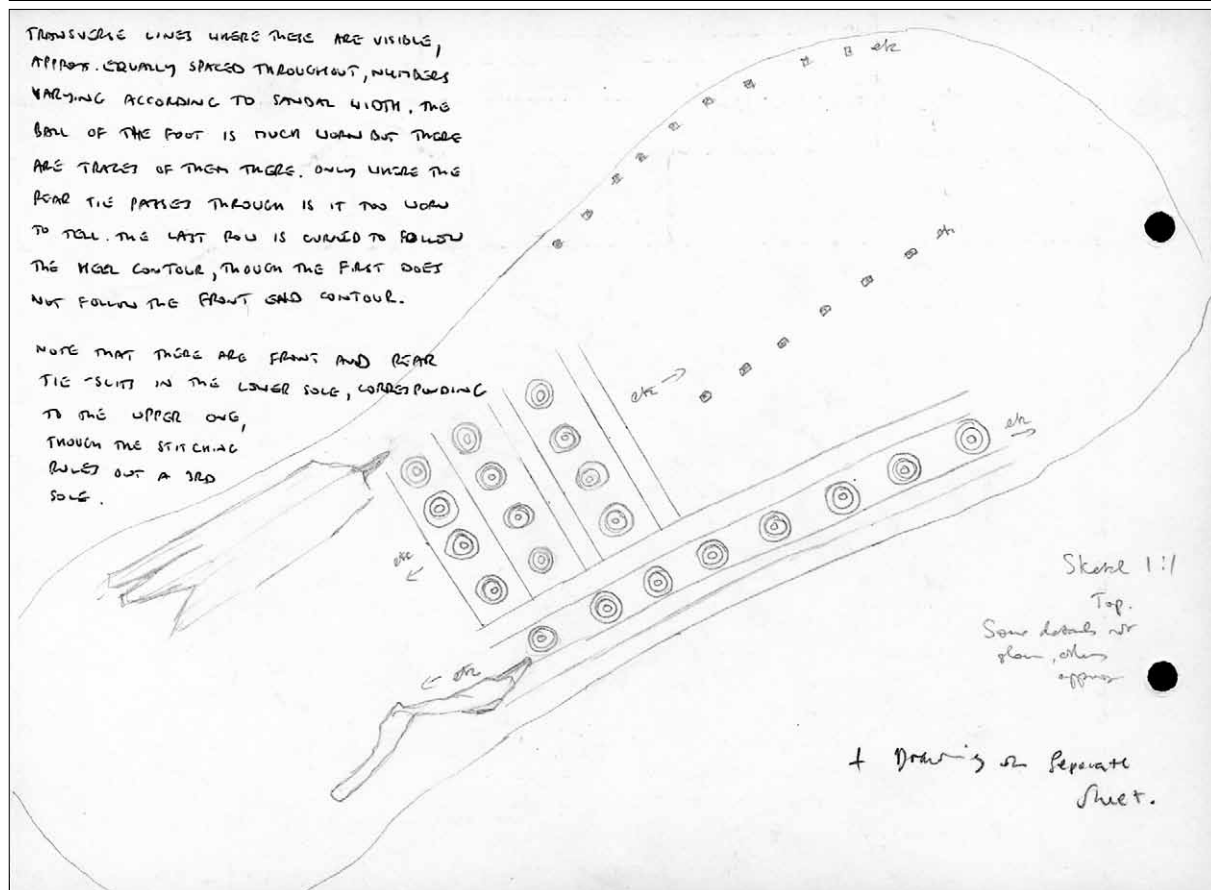 TRANSVERSE LINES WHERE THESE ARE VISIBLE,
APPROX. EQUALLY SPACED THROUGHOUT, NUMBERS
VARYING ACCORDING TO SANDAL WIDTH. THE
BALL OF THE FOOT IS MUCH WORN BUT THERE
ARE TRACES OF THEM THERE. ONLY WHERE THE
REAR TIE PASSES THROUGH IS IT TOO WORN
TO TELL. THE LAST ROW IS CURVED TO FOLLOW
THE HEEL CONTOUR, THOUGH THE FIRST DOES
NOT FOLLOW THE FRONT END CONTOUR.
NOTE THAT THERE ARE FRONT AND REAR
TIE-SLITS IN THE LOWER SOLE, CORRESPONDING
TO THE UPPER ONE,
THOUGH THE STITCHING
RULES OUT A 3RD
SOLE.
etc
etc
etc
etc
etc
etc
Sketch 1:1
Top.
Some details not
shown, others
approx
+ Drawing on Separate
Sheet.